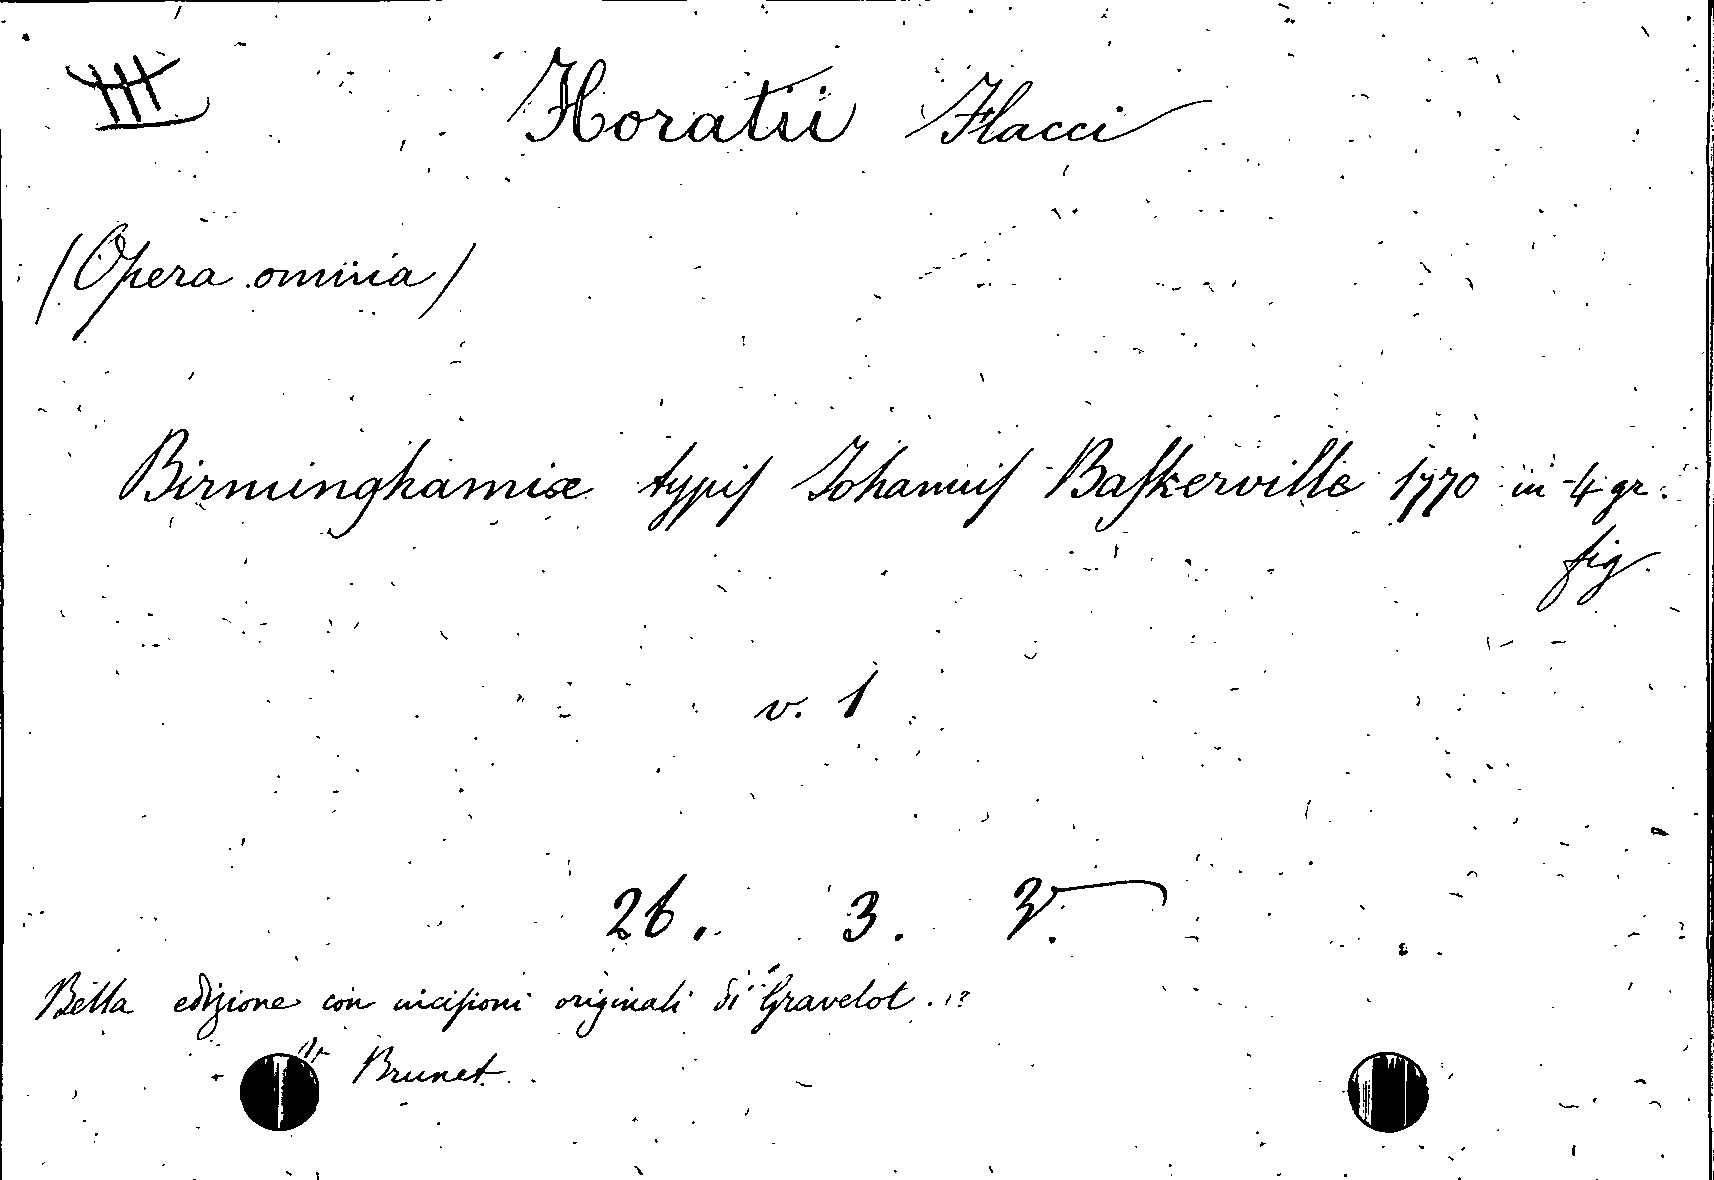 III Horatii Flacci
(Opera omnia)
Birminghamiæ typis Johannis Baskerville 1770 in 4 gr.
fig.
v. 1
26. 3. 3.
Bella edizione con incisioni originali di Gravelot.
V. Brunet.